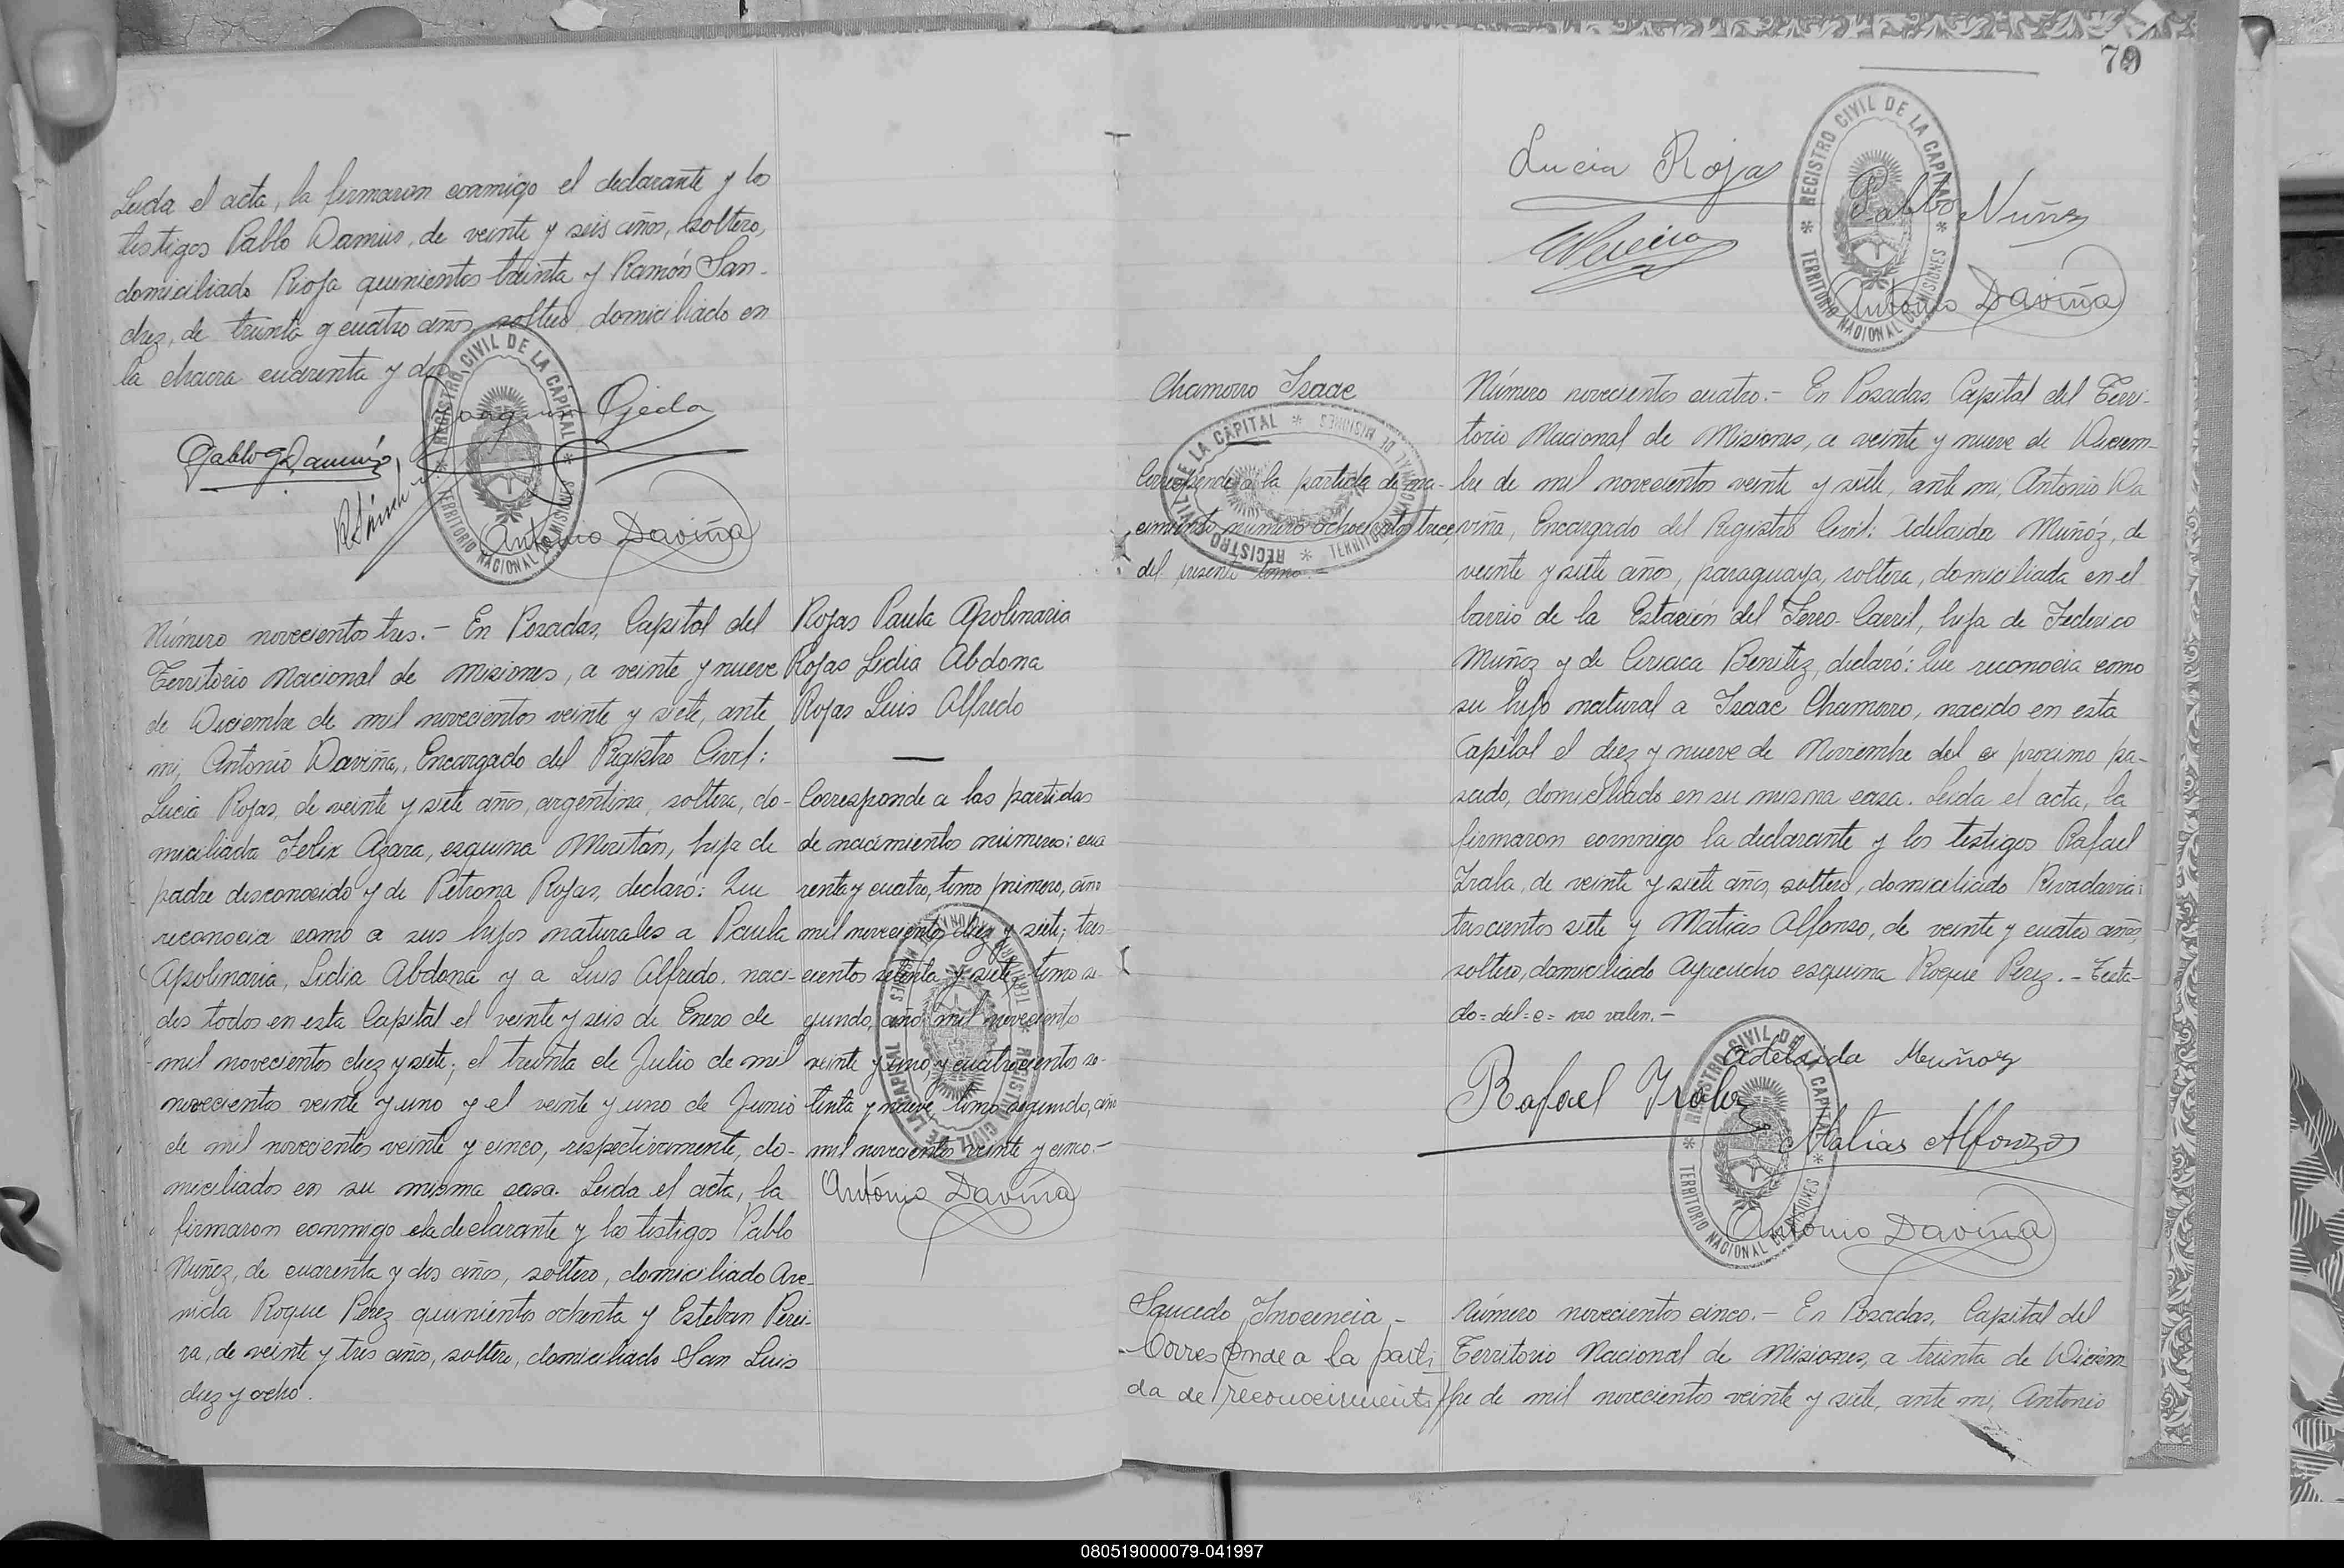 Leida el acta, la firmaron conmigo el declarante y los
testigos Pablo Damus, de veinte y seis años, soltero,
domiciliado Rioja quinientos treinta y Ramón San-
chez, de treinta y cuatro años, soltero, domiciliado en
la chacra cuarenta y dos
Joaquin Ojeda
Pablo Damus
R Sánchez
Antonio Daviña
REGISTRO CIVIL DE LA CAPITAL * TERRITORIO NACIONAL DE MISIONES *
Número novecientos tres. - En Posadas, Capital del
Territorio Nacional de Misiones, a veinte y nueve
de Diciembre de mil novecientos veinte y siete, ante
mi, Antonio Daviña, Encargado del Registro Civil:
Lucia Rojas, de veinte y siete años, argentina, soltera, do-
miciliada Felix Azara, esquina Moritán, hija de
padre desconocido y de Petrona Rojas, declaró: Que
reconocia como a sus hijos naturales a Paula
Apolinaria, Lidia Abdona y a Luis Alfredo, naci-
dos todos en esta Capital el veinte y seis de Enero de
mil novecientos diez y siete; el treinta de Julio de mil
novecientos veinte y uno y el veinte y uno de Junio
de mil novecientos veinte y cinco, respectivamente, do-
miciliados en su misma casa. Leida el acta, la
firmaron conmigo la declarante y los testigos Pablo
Núñez, de cuarenta y dos años, soltero, domiciliado Ave-
nida Roque Perez quinientos ochenta y Esteban Perei-
ra, de veinte y tres años, soltero, domiciliado San Luis
diez y ocho.
Rojas Paula Apolinaria
Rojas Lidia Abdona
Rojas Luis Alfredo
Corresponde a las partidas
de nacimientos números: cua
renta y cuatro, tomo primero, año
mil novecientos diez y siete; tres-
cientos setenta y siete, tomo se-
gundo, año mil novecientos
veinte y uno, y cuatrocientos se-
tenta y nueve, tomo segundo, año
mil novecientos veinte y cinco.-
Antonio Daviña
REGISTRO CIVIL DE LA CAPITAL * TERRITORIO NACIONAL DE MISIONES *
79
Lucia Rojas
Pablo Nuñez
EPereira
Antonio Daviña
REGISTRO CIVIL DE LA CAPITAL * TERRITORIO NACIONAL DE MISIONES *
Chamorro Isaac
Corresponde a la partida de na-
cimiento número ochocientos trece,
del presente tomo.-
REGISTRO CIVIL DE LA CAPITAL * TERRITORIO NACIONAL DE MISIONES *
Número novecientos cuatro.- En Posadas, Capital del Terri-
torio Nacional de Misiones, a veinte y nueve de Diciem-
bre de mil novecientos veinte y siete, ante mi, Antonio Da
viña, Encargado del Registro Civil: Adelaida Muñóz, de
veinte y siete años, paraguaya, soltera, domiciliada en el
barrio de la Estación del Ferro-Carril, hija de Federico
Muñoz y de Ciriaca Benitez, declaró: Que reconocia como
su hijo natural a Isaac Chamorro, nacido en esta
Capital el diez y nueve de Noviembre del e proximo pa-
sado, domiciliado en su misma casa. Leida el acta, la
firmaron conmigo la declarante y los testigos Rafael
Irala, de veinte y siete años, soltero, domiciliado Rivadavia:
trescientos siete y Matias Alfonso, de veinte y cuatro años,
soltero, domiciliado Ayacucho esquina Roque Perez. - Testa-
do=del=e= no valen.-
Adelaida Muñoz
Rafael Irala
Matias Alfonzo
Antonio Daviña
REGISTRO CIVIL DE LA CAPITAL * TERRITORIO NACIONAL DE MISIONES *
Saucedo Inocencia -
Corresponde a la parti
da de reconocimiento
Número novecientos cinco.- En Posadas, Capital del
Territorio Nacional de Misiones, a treinta de Diciem
bre de mil novecientos veinte y siete, ante mi, Antonio
080519000079-041997